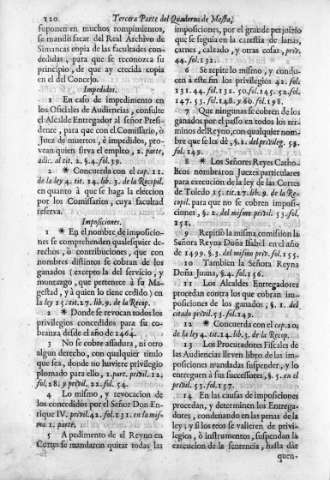 220 Tercera Parte del Quaderno de Mesta,
suponen en muchos rompimientos,
se mandò sacar del Real Archivo de
Simancas copia de las facultades con-
cedidas, para que se reconozca su
principio, de que ay crecida copia
en el del Concejo.
Impedidos.
1 En caso de impedimento en
los Oficiales de Audiencias, consulte
el Alcalde Entregador al señor Presi-
dente, para que con el Comissario, ò
Juez de muertos, è impedidos, pro-
vean quien sirva el empleo, 2. parte,
adic. al tit. 2. §.4. fol.39.
2 * Concuerda con el cap. 11.
de la ley 4. tit. 14. lib. 3. de la Recopil.
en quanto à que se haga la eleccion
por los Comissarios, cuya facultad
reserva.
Imposiciones.
1 * En el nombre de imposicio-
nes se comprehenden qualesquier de-
rechos, ò contribuciones, que con
nombres distintos se cobran de los
ganados (excepto la del servicio, y
montazgo, que pertenece à su Ma-
gestad, y à quien lo tiene cedido) en
la ley 15. tit. 27. lib. 9. de la Recop.
2 * Donde se revocan todos los
privilegios concedidos para su co-
branza desde el año de 1464.
3 No se cobre assadura, ni otro
algun derecho, con qualquier titulo
que sea, donde no huviere privilegio
plomado para ello, 1. part. privil. 24.
fol. 28. y privil. 22. fol. 54.
4 Lo mismo, y revocacion de
los concedidos por el Señor Don En-
rique IV. privil. 42. fol. 131. en la mis-
ma 1. parte.
5 A pedimento de el Reyno en
Cortes se mandaron quitar todas las
imposiciones, por el grande perjuicio
que se seguia en la carestìa de lanas,
carnes, calzado, y otras cosas, privil.
44. fol. 132.
6 Se repite lo mismo, y condu-
cen à este fin los privilegios 42. fol.
131. 44. fol. 132. 50. fol. 145. 52. fol.
147. 53. fol. 148. y 60. fol. 198.
7 Que ningunas se cobren de los
ganados por el passo en todos los ter-
minos del Reyno, con qualquier nom-
bre que se les dè, §. 2. del privileg. 58.
fol. 149.
8 * Los Señores Reyes Catho-
licos nombraron Jueces particulares
para execucion de la ley de las Cortes
de Toledo 15. tit. 27. lib. 9. de la Re-
copil. para que no se cobren imposi-
ciones, §. 2. del mismo privil. 53. fol.
151.
9 Repitiò la misma comission la
Señora Reyna Doña Isabèl en el año
de 1499. §. 3. del mismo privil. 155.
10 Tambien la Señora Reyna
Doña Juana, §. 4. fol. 156.
11 Los Alcaldes Entregadores
procedan contra los que cobran im-
posiciones de los ganados, §. 1. del
citado privil. 53. fol. 149.
12 * Concuerda con el cap. 20.
de la ley 4. tit. 14. lib. 3. de la Recop.
13 Los Procuradores Fiscales de
las Audiencias lleven libro de las im-
posiciones mandadas suspender, y lo
entreguen à sus successores, §. 5. en el
privil. 53. fol. 157.
14 En las causas de imposiciones
procedan, y determinen los Entrega-
dores, condenando en las penas de la
ley; y si los reos se valieren de privi-
legios, ò instrumentos, suspendan la
execucion de la sentencia, hasta dàr
quen-